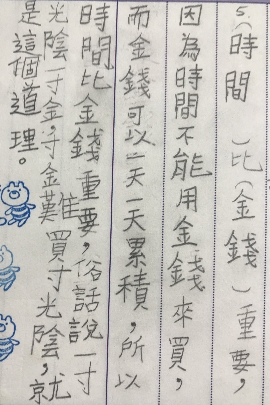 5.(時間)比(金錢)重要,
因為時間不能用金錢來買,
而金錢可以一天一天累積,所以
時間比金錢重要,俗話說一寸
光陰一寸金,寸金難買寸光陰,就
是這個道理。